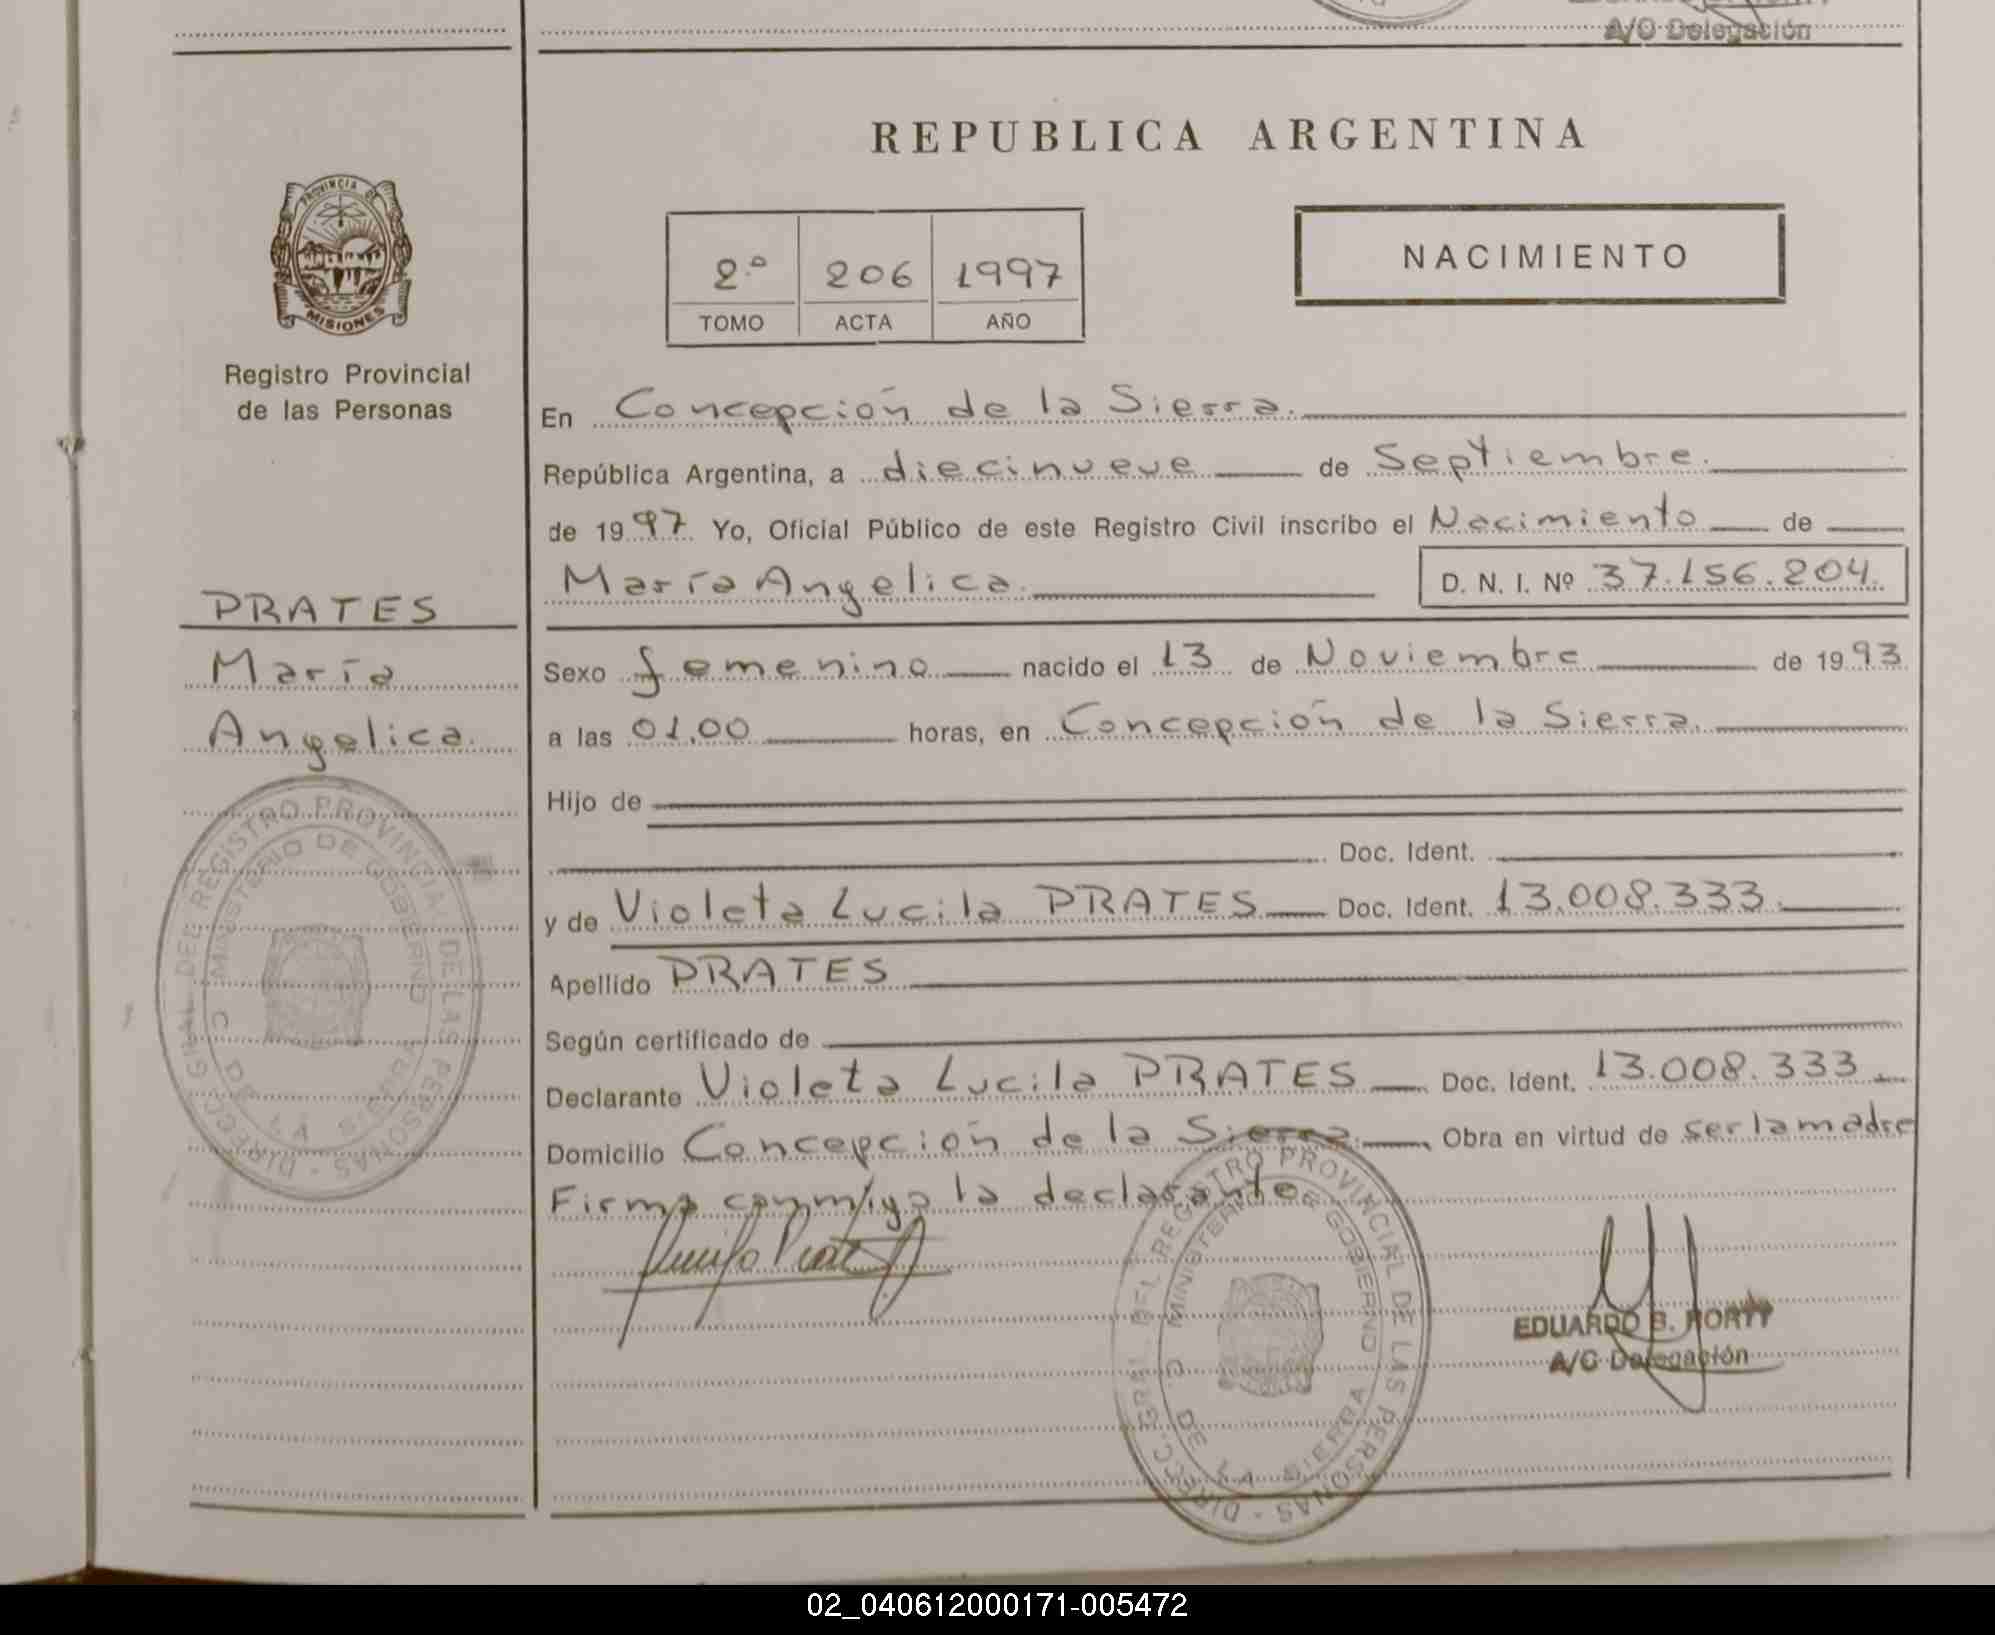 A/C Delegación
REPUBLICA ARGENTINA
PROVINCIA DE
MISIONES
Registro Provincial
de las Personas
2.º 206 1997
TOMO ACTA AÑO
NACIMIENTO
En Concepción de la Sierra.
República Argentina, a diecinueve de Septiembre.
de 1997 Yo, Oficial Público de este Registro Civil inscribo el Nacimiento de
María Angelica. D. N. I. Nº 37.156.204.
PRATES
María
Angelica.
Sexo femenino nacido el 13 de Noviembre de 1993
a las 01.00 horas, en Concepción de la Sierra.
Hijo de
Doc. Ident.
y de Violeta Lucila PRATES Doc. Ident. 13.008.333.
Apellido PRATES
Según certificado de
Declarante Violeta Lucila PRATES Doc. Ident. 13.008.333.
Domicilio Concepción de la Sierra. Obra en virtud de ser la madre
Firma conmigo la declarante
DIREC. GRAL. DEL REGISTRO PROVINCIAL DE LAS PERSONAS
MINISTERIO DE GOBIERNO
C. DE LA SIERRA
DIREC. GRAL. DEL REGISTRO PROVINCIAL DE LAS PERSONAS
MINISTERIO DE GOBIERNO
C. DE LA SIERRA
EDUARDO
A/C Delegación
02_040612000171-005472